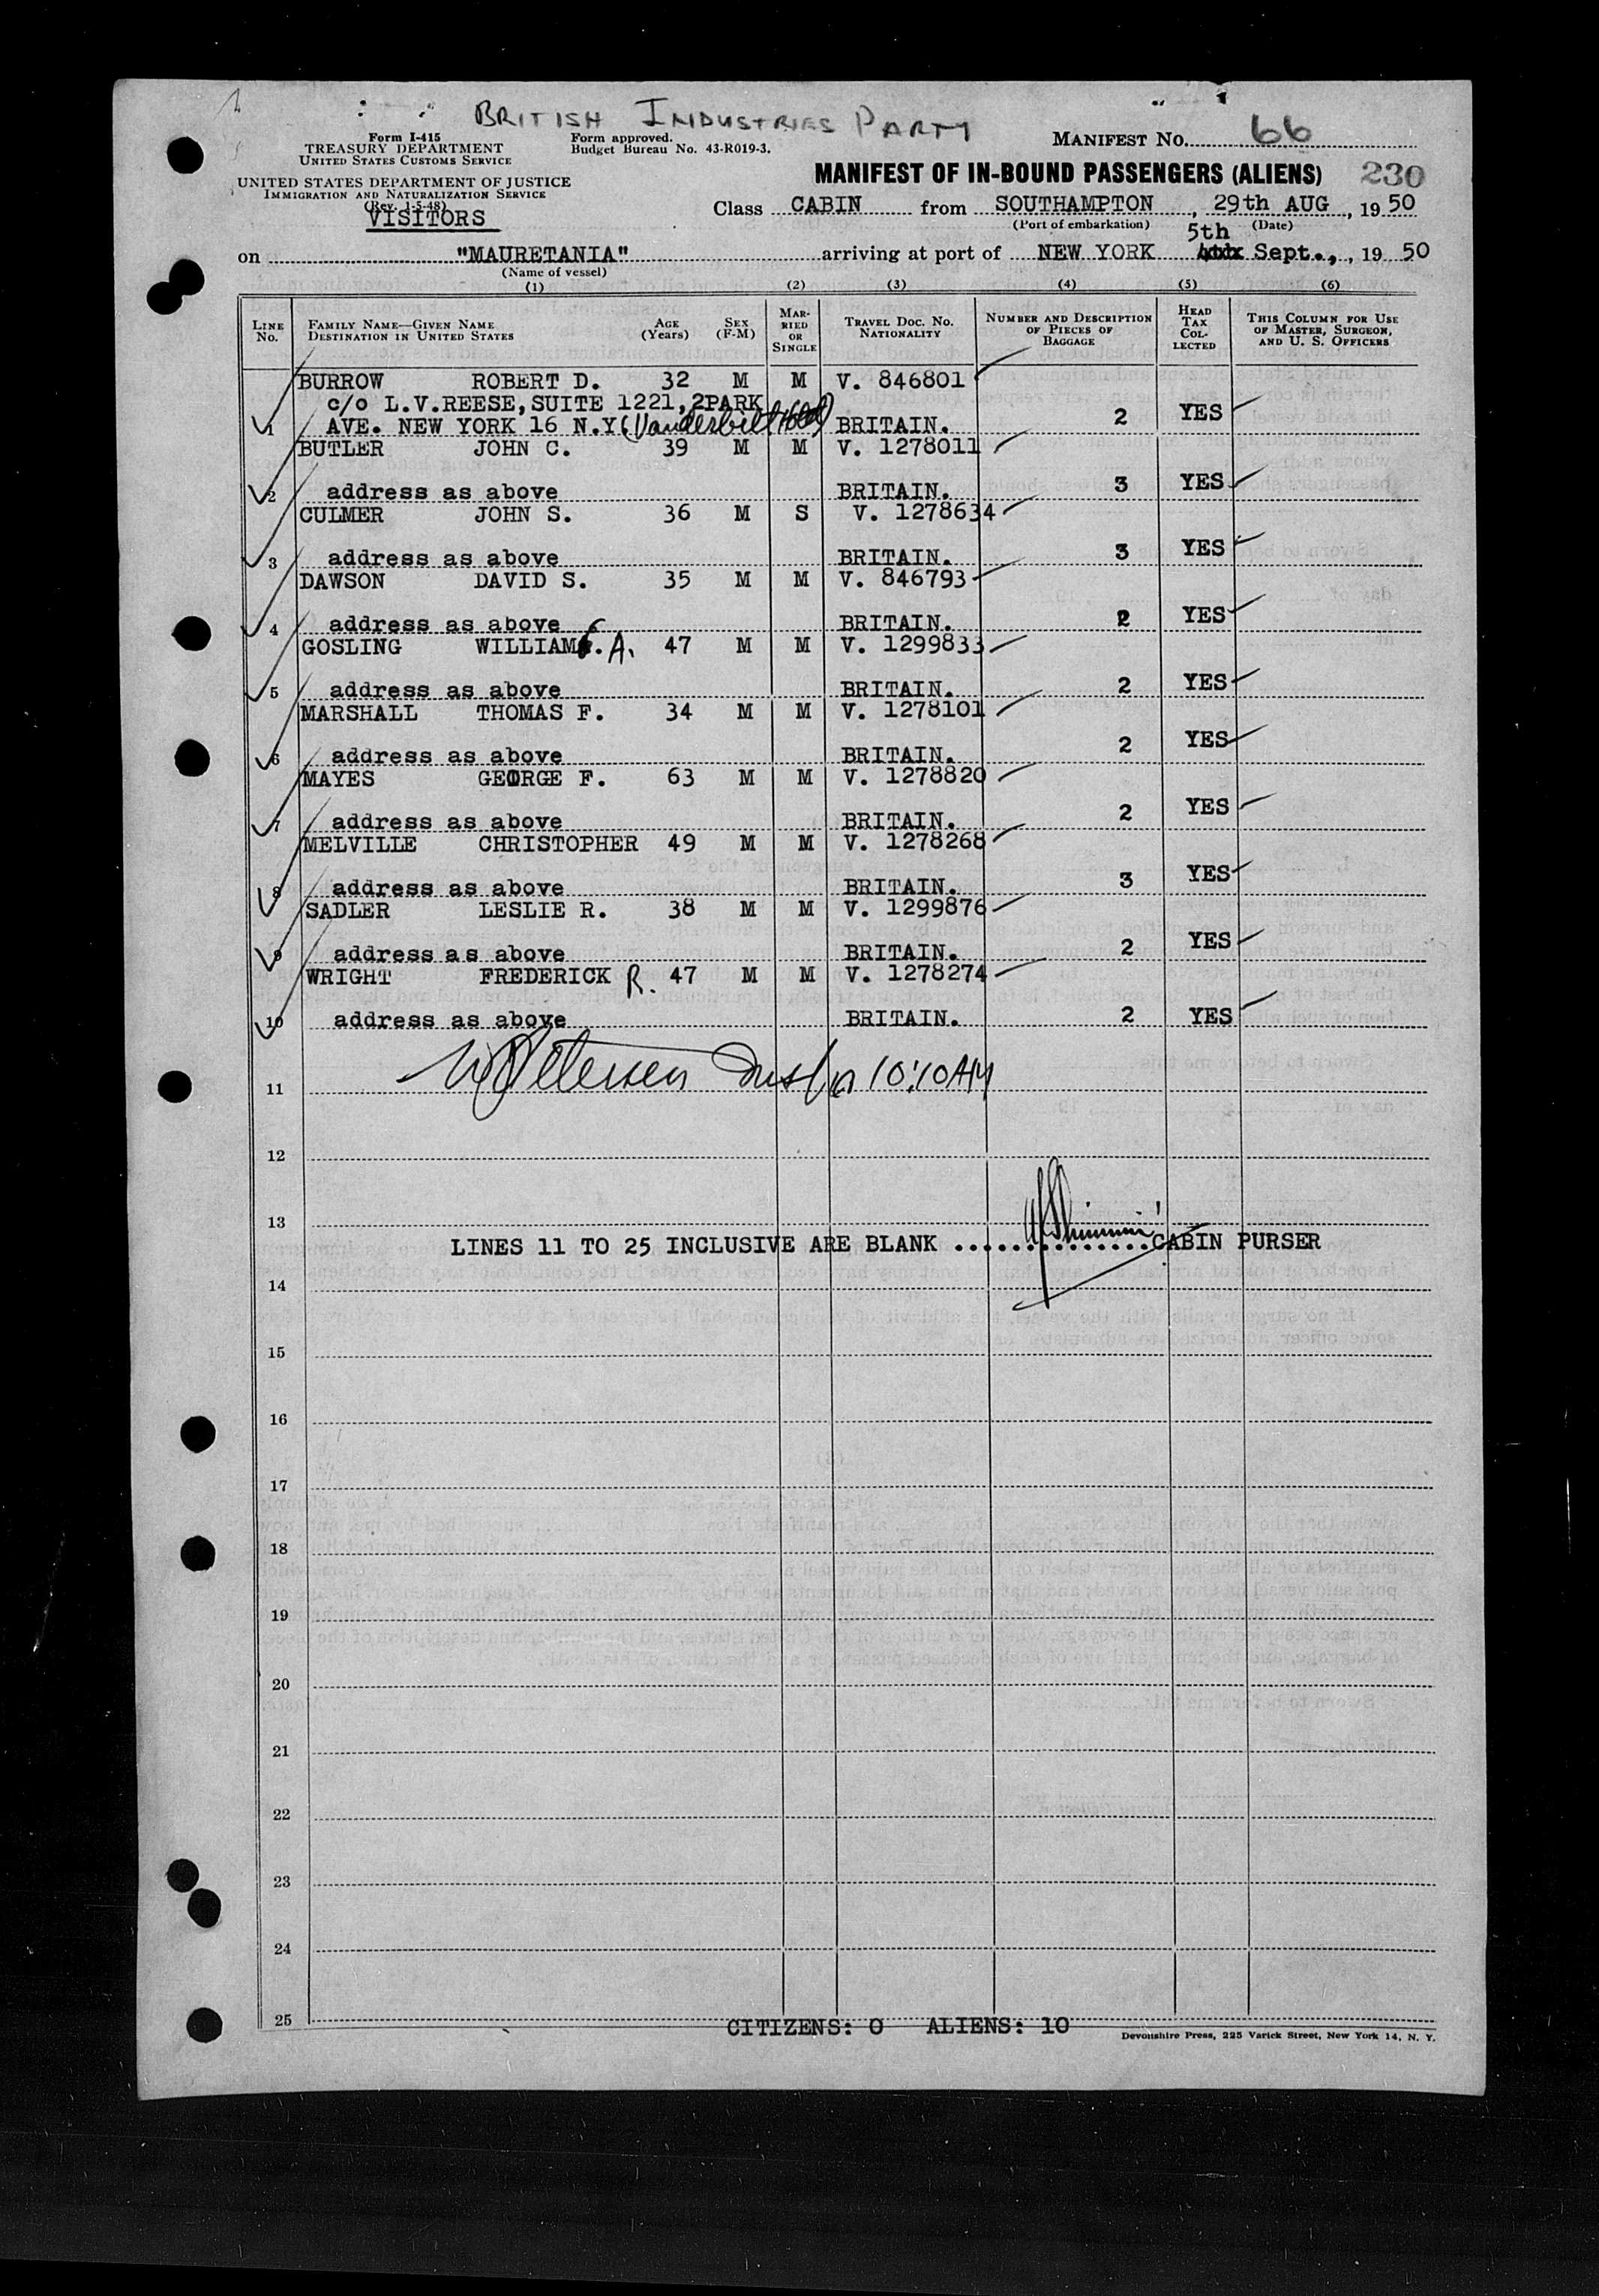 BRITISH INDUSTRIES PARTY
Form I-415
TREASURY DEPARTMENT
UNITED STATES CUSTOMS SERVICE
Form approved.
Budget Bureau No. 43-R019-3.
MANIFEST No. 66
UNITED STATES DEPARTMENT OF JUSTICE
IMMIGRATION AND NATURALIZATION SERVICE
(Rev. 1-5-48)
VISITORS
MANIFEST OF IN-BOUND PASSENGERS (ALIENS) 230
Class CABIN from SOUTHAMPTON, 29th AUG, 1950
(Port of embarkation) (Date)
5th
on "MAURETANIA" arriving at port of NEW YORK Sept., , 1950
(Name of vessel)
(1) (2) (3) (4) (5) (6)
LINE No. FAMILY NAME—GIVEN NAME DESTINATION IN UNITED STATES AGE (Years) SEX (F-M) MARRIED OR SINGLE TRAVEL DOC. NO. NATIONALITY NUMBER AND DESCRIPTION OF PIECES OF BAGGAGE HEAD TAX COLLECTED THIS COLUMN FOR USE OF MASTER, SURGEON, AND U. S. OFFICERS
BURROW ROBERT D. 32 M M V. 846801
c/o L.V.REESE,SUITE 1221,2PARK
1 AVE. NEW YORK 16 N.Y. (Vanderbilt Hotel) BRITAIN. 2 YES
BUTLER JOHN C. 39 M M V. 1278011
2 address as above BRITAIN. 3 YES
CULMER JOHN S. 36 M S V. 1278634
3 address as above BRITAIN. 3 YES
DAWSON DAVID S. 35 M M V. 846793
4 address as above BRITAIN. 2 YES
GOSLING WILLIAM F. A. 47 M M V. 1299833
5 address as above BRITAIN. 2 YES
MARSHALL THOMAS F. 34 M M V. 1278101
6 address as above BRITAIN. 2 YES
MAYES GEORGE F. 63 M M V. 1278820
7 address as above BRITAIN. 2 YES
MELVILLE CHRISTOPHER 49 M M V. 1278268
8 address as above BRITAIN. 3 YES
SADLER LESLIE R. 38 M M V. 1299876
9 address as above BRITAIN. 2 YES
WRIGHT FREDERICK R. 47 M M V. 1278274
10 address as above BRITAIN. 2 YES
11 10:10 AM
12
13
LINES 11 TO 25 INCLUSIVE ARE BLANK .............. CABIN PURSER
14
15
16
17
18
19
20
21
22
23
24
25
CITIZENS: 0 ALIENS: 10
Devonshire Press, 225 Varick Street, New York 14, N. Y.